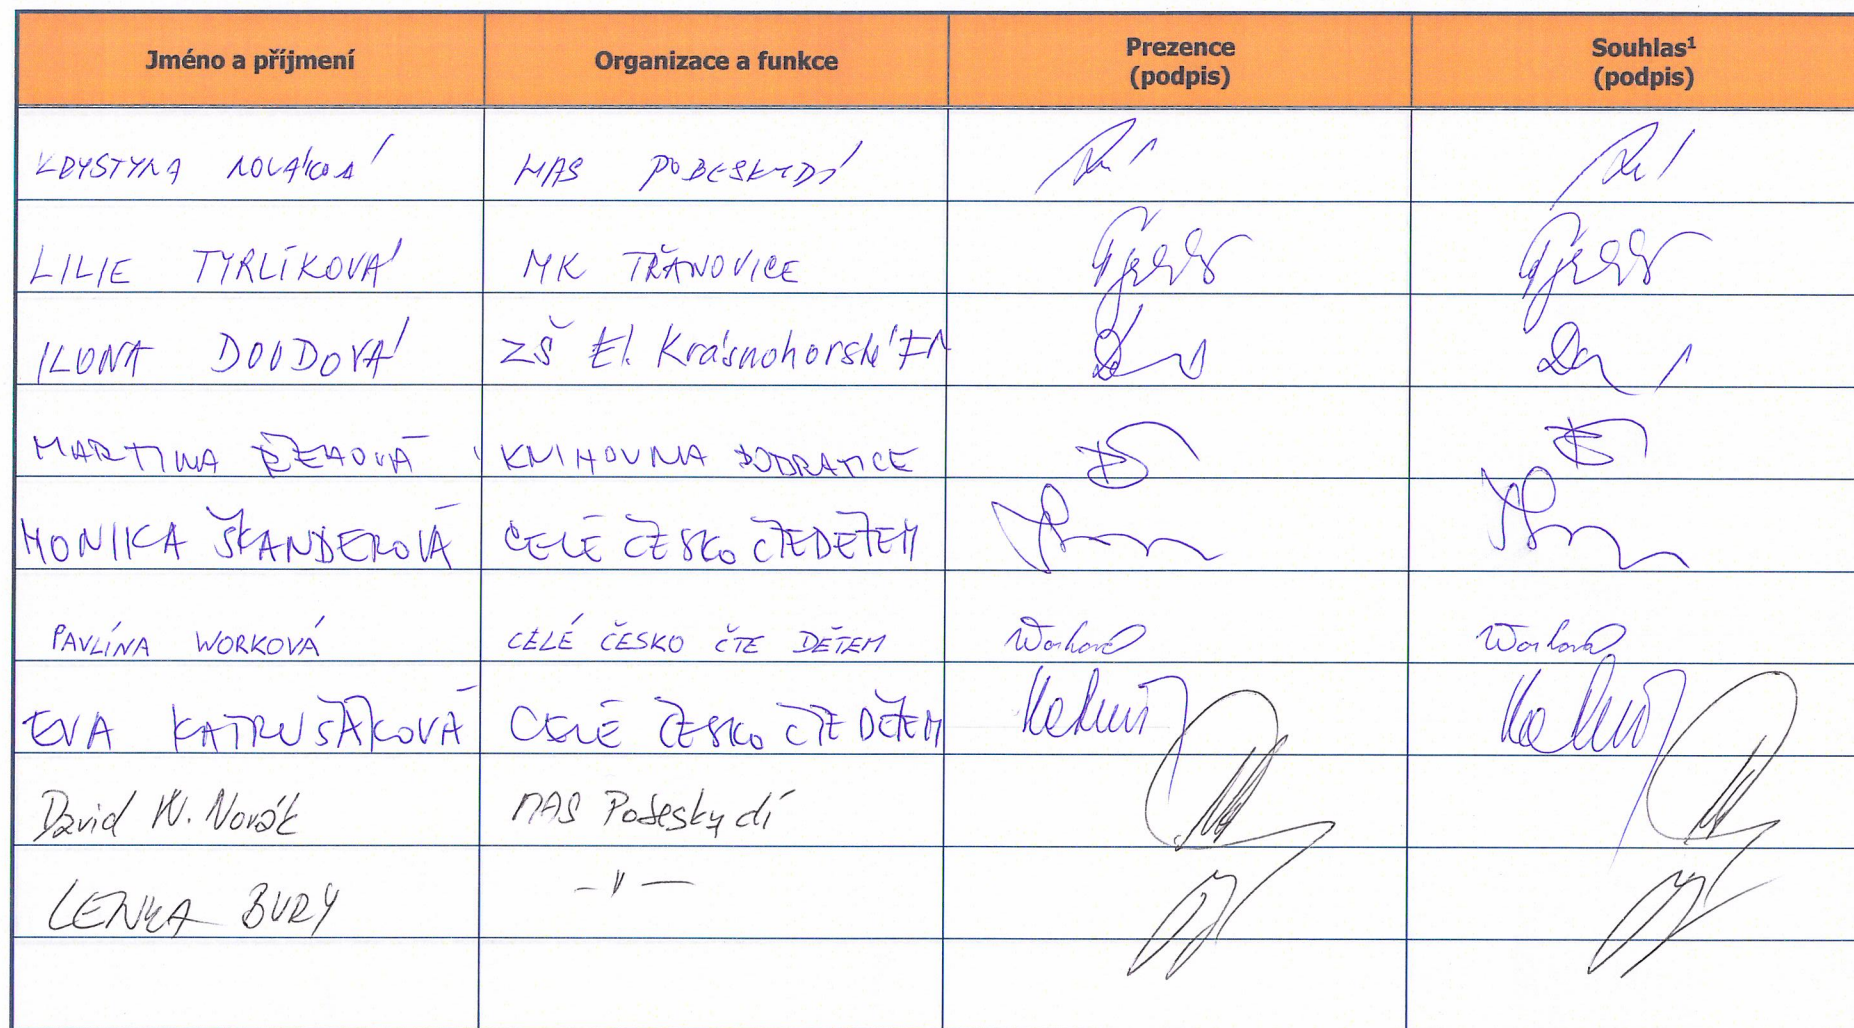 Jméno a příjmení Organizace a funkce Prezence (podpis) Souhlas¹ (podpis)
KRYSTYNA NOVÁKOVÁ MAS POBESKYDÍ
LILIE TYRLÍKOVÁ MK TŘANOVICE
ILONA DOUDOVÁ ZŠ El. Krásnohorské FM
MARTINA KNIHOVNA
MONIKA ŠKANDEROVÁ CELÉ ČESKO ČTE DĚTEM
PAVLÍNA WORKOVÁ CELÉ ČESKO ČTE DĚTEM Worková Worková
EVA KATRUŠÁKOVÁ CELÉ ČESKO ČTE DĚTEM
David W. Novák MAS Pobeskydí
LENKA BURY -||-